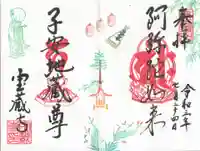 奉拝
阿弥陀如来
令和二年
七月二十四日
子安地蔵尊
宝蔵寺